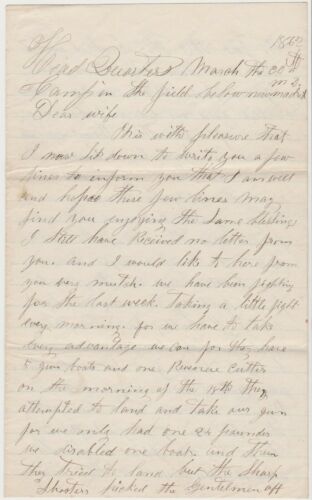 1862
Head Quarters March the 20th
Camp in the field below newmadrid
Dear wife
this with pleasure that
I now sit down to write you a few
lines to inform you that I am well
and hopes these few lines may
find you enjoying the same blessing
I still have Received no letter from
you. and I would like to here from
you very mutch. we have been fighting
for the last week. taking a little fight
every morning. for we have to take
every advantage we can for they have
5 gun boats and one Revenue Cutter
on the morning of the 18th they
attempted to land and take our gun
for we only had one 24 pounder
we disabled one boat. and then
they tried to land but the Sharp
Shooters picked the Gentelmen off